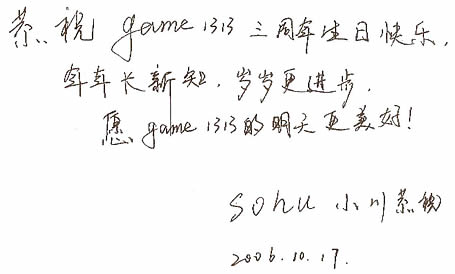 恭祝 game 1313 三周年生日快乐,
年年长新知, 岁岁更进步,
愿 game 1313的明天更美好!
sohu 小川 恭祝
2006.10.17.